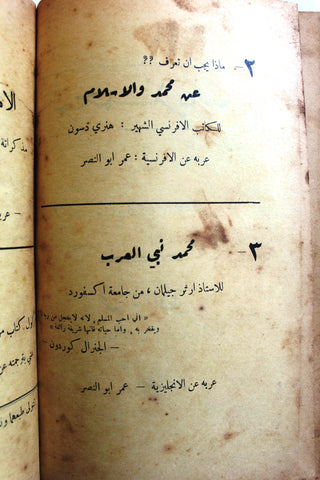 ٢ - ماذا يجب ان تعرف ؟؟
عن محمد والاسلام
للكاتب الافرنسي الشهير : هنري دسون
عربه عن الافرنسية : عمر ابو النصر
٣ - محمد نبي العرب
للاستاذ ارثر جيلمان ، من جامعة اكسفورد
« اني احب المسلم ، لانه لايخجل من ربه
ويفخر به ، واما حياته فانها شريفة رائعة »
— الجنرال كوردون —
عربه عن الانجليزية — عمر ابو النصر
الا
مذكراتة
— عر
اول كتاب